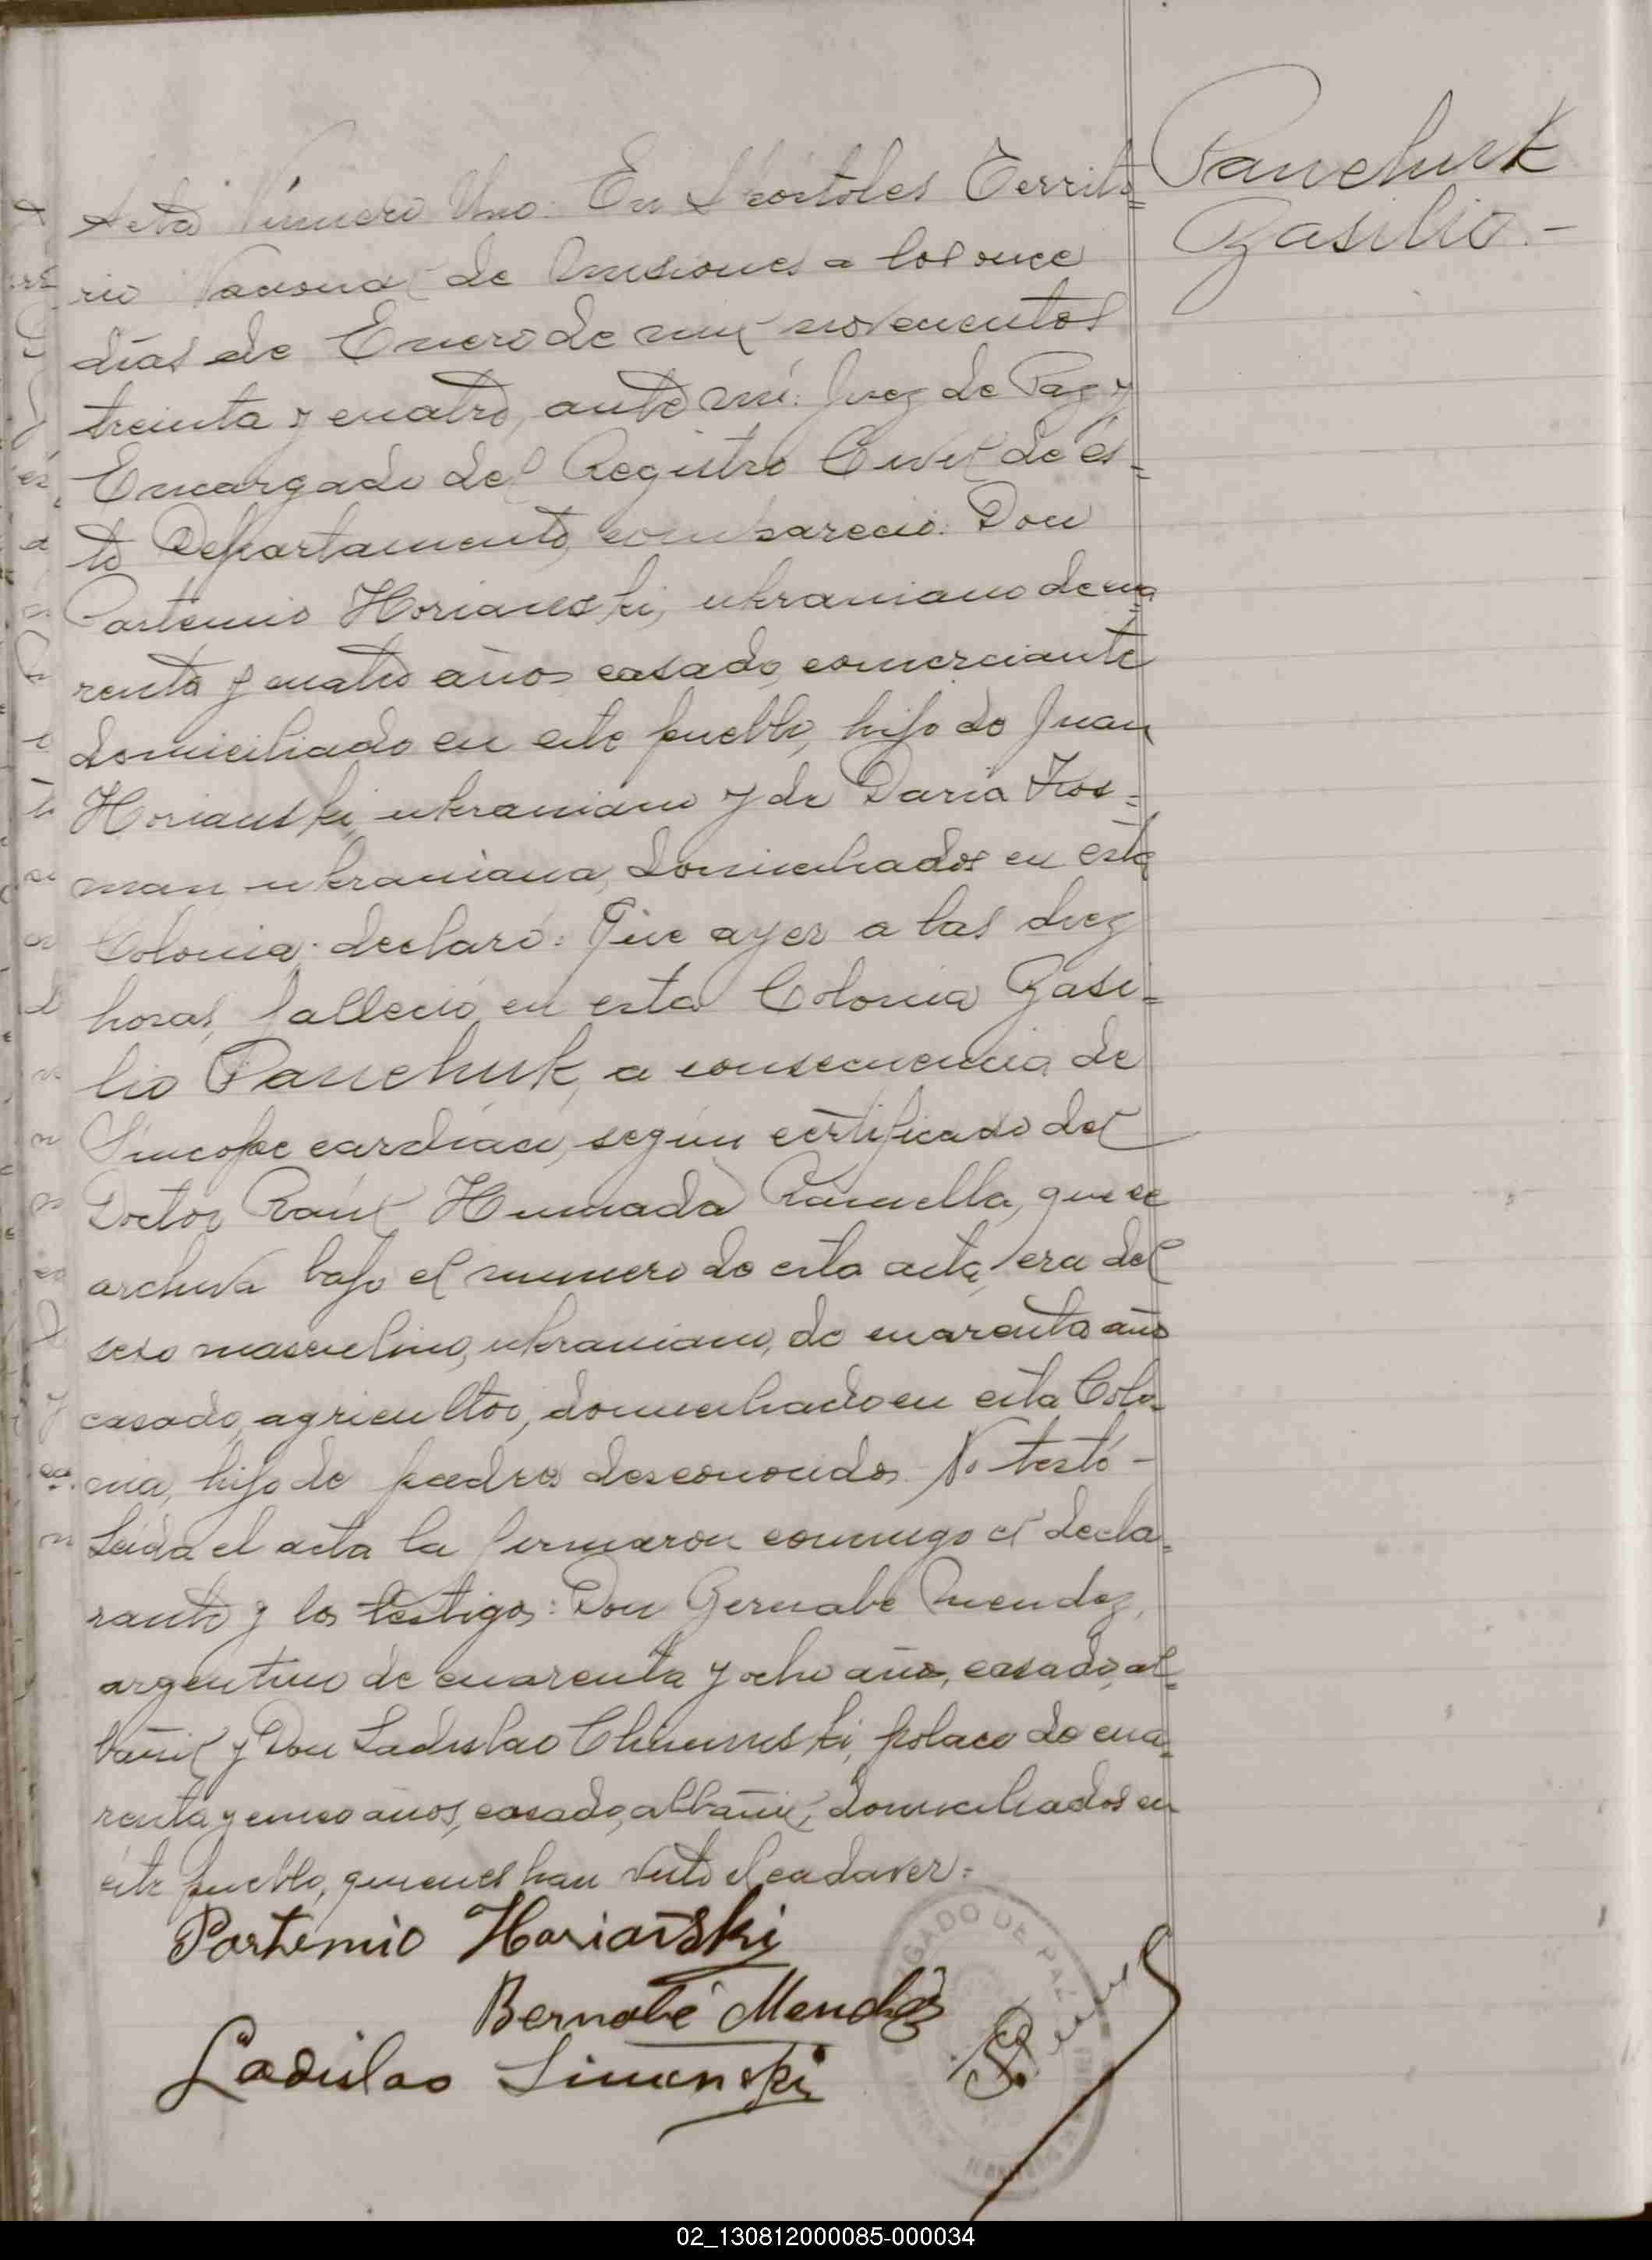 Panchuk
Basilio.-
Acta Número Uno. En Apóstoles Territo=
rio Nacional de Misiones a los once
días de Enero de mil novecientos
treinta y cuatro, ante mí: Juez de Paz y
Encargado del Registro Civil de és=
te Departamento, compareció: Don
Partemio Horianski, ukraniano de cua=
renta y cuatro años casado, comerciante
domiciliado en este pueblo, hijo de Juan
Horianski, ukraniano y de Daria Kos=
man, ukraniana, domiciliados en esta
Colonia; declaró: Que ayer a las diez
horas, falleció en esta Colonia Basi=
lio Panchuk, a consecuencia de
Síncope cardíaco, según certificado del
Doctor Raúl Humada Ramella, que se
archiva bajo el numero de esta acta, era del
sexo masculino, ukraniano, de cuarenta años
casado, agricultor, domiciliado en esta Colo=
nia, hijo de padres desconocidos. No testó-
Leida el acta la firmaron conmigo el decla=
rante y los testigos: Don Bernabe Mendez,
argentino de cuarenta y ocho años, casado, al=
bañil y Don Ladislao Chiminski, polaco de cua=
renta y cinco años, casado, albañil, domiciliados en
éste pueblo, quienes han visto el cadaver=
Partemio Horianski
Bernabé Mendez
Ladislao Simenski
JUZGADO DE PAZ
02_130812000085-000034